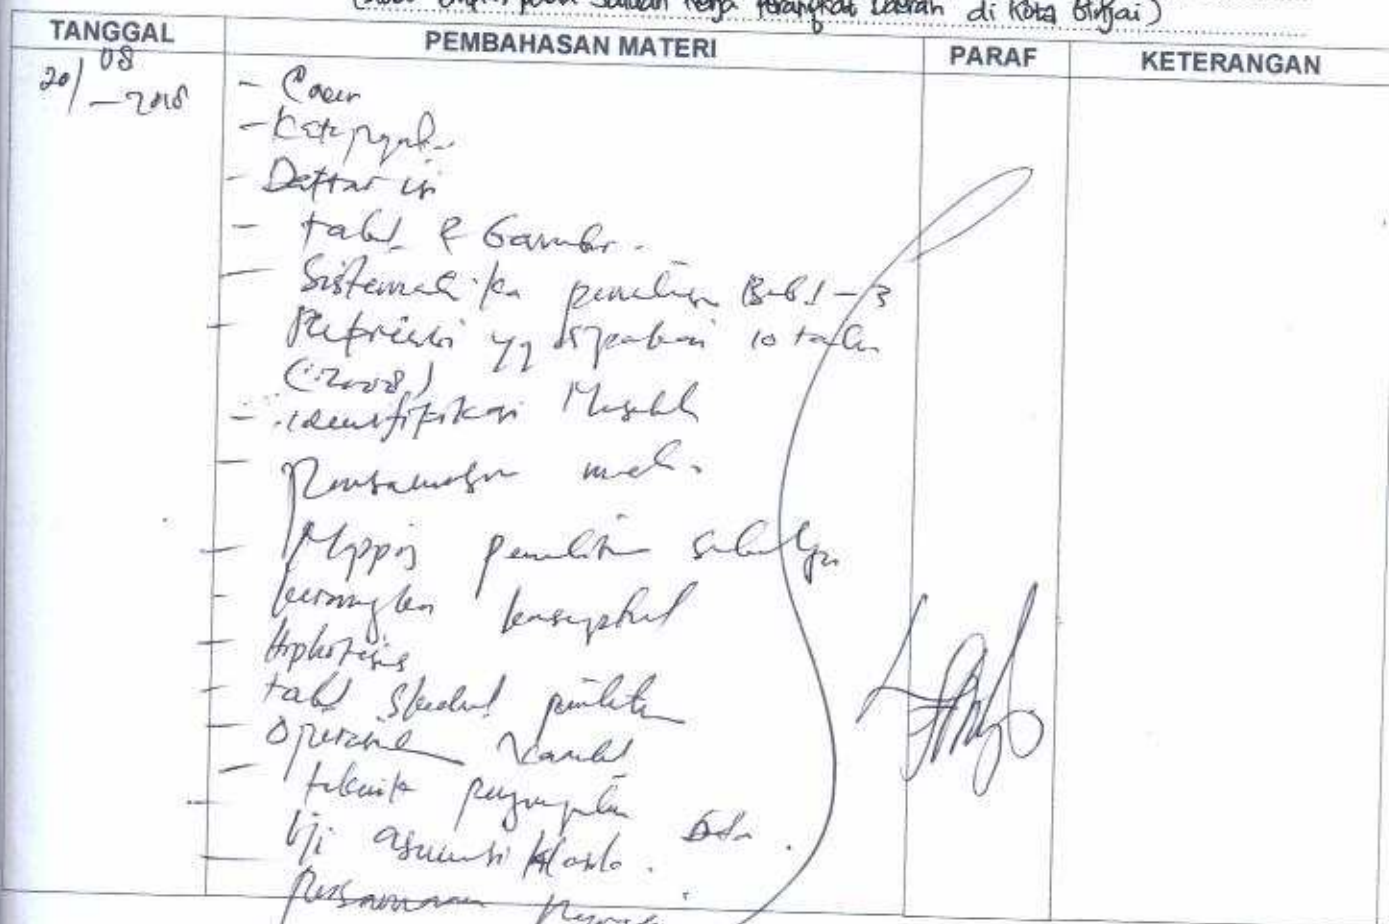 pada Satuan Kerja Perangkat Daerah di Kota Binjai)
TANGGAL PEMBAHASAN MATERI PARAF KETERANGAN
20/08-2018
- Cover
- Kata
- Daftar isi
- tabel & Gambar.
- Sistematika penulisan Bab 1-3
- Referensi yg dipakai 10 tahun
(2008)
- identifikasi Masalah
-
- Mapping penelitian sebelumnya
- kerangka konseptual
- Hiphotesis
- tabel skedul penelitian
- Operasional Variabel
- teknik pengumpulan data.
- Uji asumsi klasik.
- persamaan